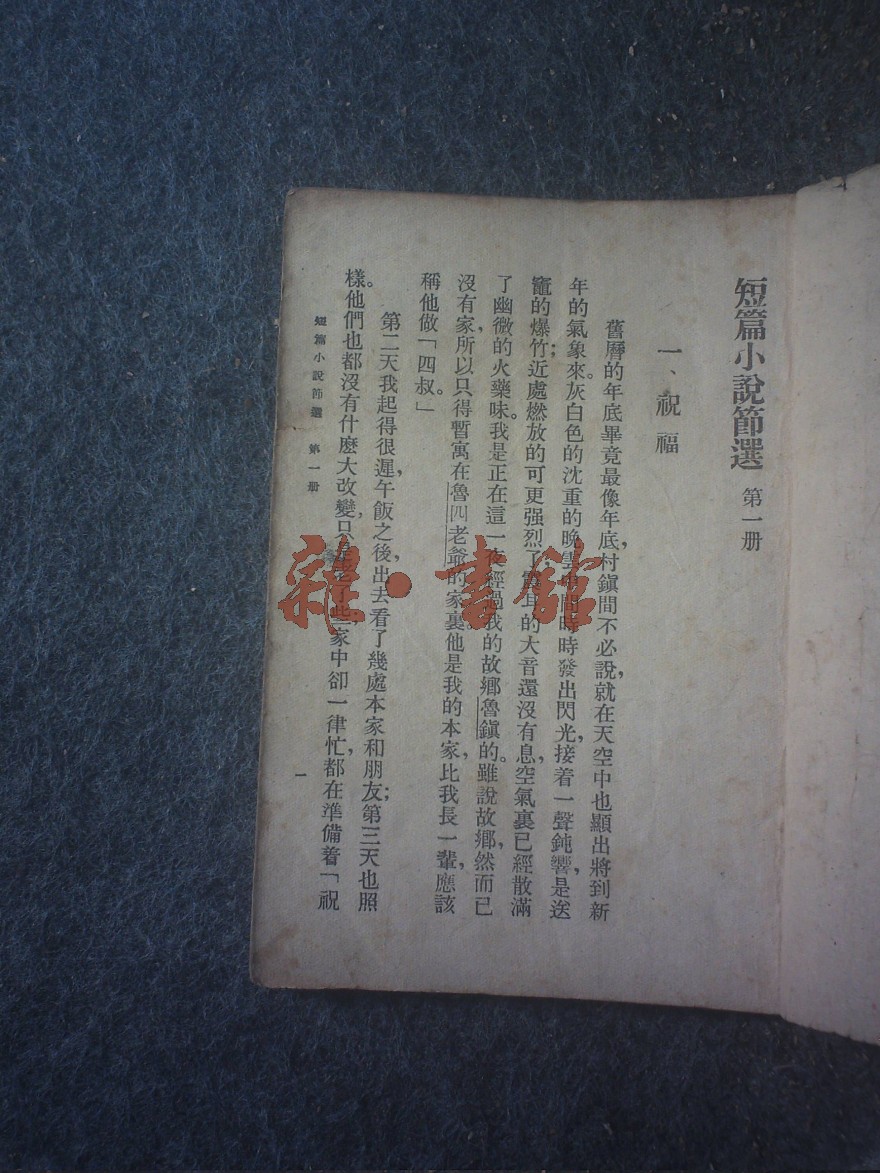 短篇小說節選 第一册
一、祝福
舊曆的年底畢竟最像年底，村鎮間不必說，就在天空中也顯出將到新
年的氣象來。灰白色的沈重的晚雲中間時時發出閃光，接着一聲鈍響，是送
竈的爆竹；近處燃放的可更强烈了，震耳的大音還沒有息，空氣裏已經散滿
了幽微的火藥味。我是正在這一夜經過我的故鄉魯鎮的。雖說故鄉，然而已
沒有家，所以只得暫寓在魯四老爺的家裏。他是我的本家，比我長一輩，應該
稱他做「四叔。」
第二天我起得很遲，午飯之後，出去看了幾處本家和朋友；第三天也照
樣。他們也都沒有什麽大改變，只是老了些；家中卻一律忙，都在準備着「祝
短篇小說節選 第一册
一
雜·書館